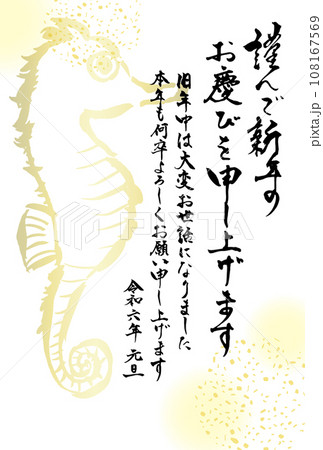 謹んで新年の
お慶びを申し上げます
旧年中は大変お世話になりました
本年も何卒よろしくお願い申し上げます
令和六年 元旦
PIXTA
108167569